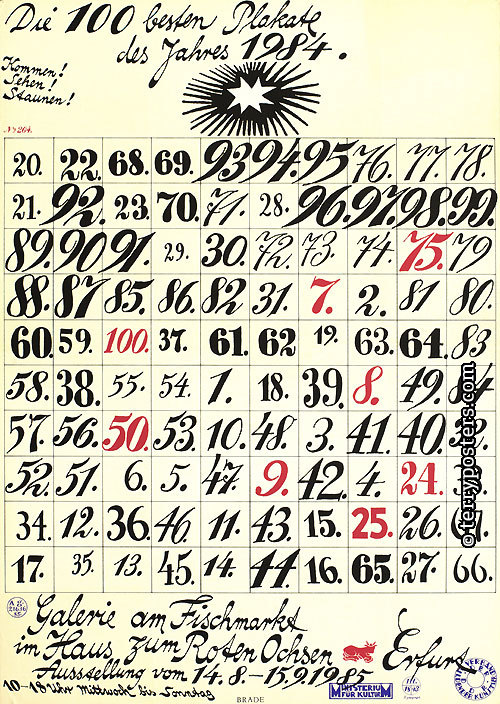 Die 100 besten Plakate
des Jahres 1984.
Kommen!
Sehen!
Staunen!
20. 22. 68. 69. 93 94. 95 76. 77. 78.
21. 92. 23. 70. 71. 28. 96. 97. 98. 99.
89. 90 91. 29. 30. 72. 73. 74. 75. 79
88. 87 85. 86. 82 31. 7. 2. 81 80.
60. 59. 100. 37. 61. 62 19. 63. 64. 83
58. 38. 55. 54. 1. 18. 39. 8. 49. 84
57. 56. 50. 53. 10. 48. 3. 41. 40.
52. 51. 6. 5. 47. 9. 42. 4. 24.
34. 12. 36. 46. 11. 43. 15. 25. 26.
17. 35. 13. 45. 14. 44 16. 65. 27. 66.
©terryposters.com
Galerie am Fischmarkt
im Haus zum Roten Ochsen Erfurt
Ausstellung vom 14.8.-15.9.1985
10-18 Uhr Mittwoch bis Sonntag
MINISTERIUM
FÜR KULTUR
BRADE